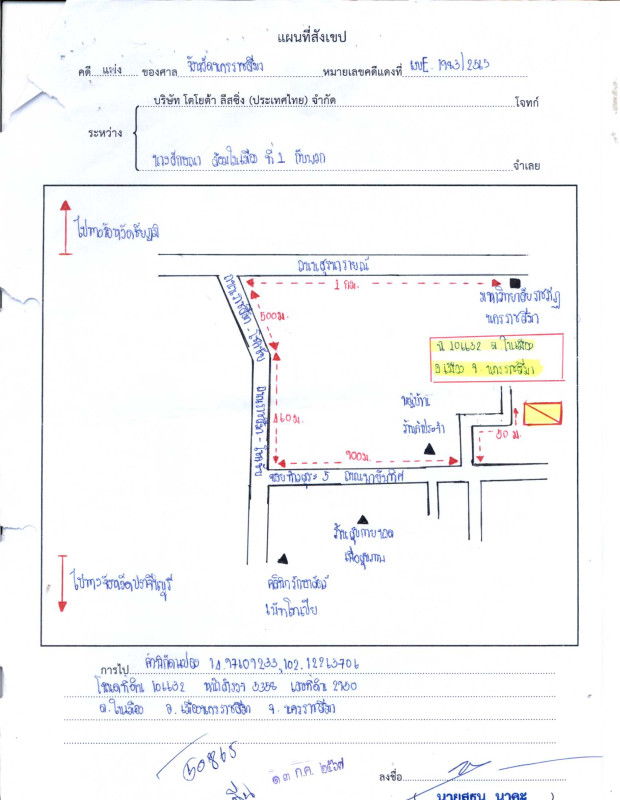 แผนที่สังเขป
คดี แพ่ง ของศาล จังหวัดนครราชสีมา หมายเลขคดีแดงที่ ผบE. 1943/2565
บริษัท โตโยต้า ลีสซิ่ง (ประเทศไทย) จำกัด โจทก์
ระหว่าง
ที่ 1 กับพวก จำเลย
ไปทางจังหวัดชัยภูมิ
ถนนสุรนารายณ์
1 กม.
มหาวิทยาลัยราชภัฏ
นครราชสีมา
ถนนราชสีมา - โชคชัย
500 ม.
น. 101632 ต. ในเมือง
อ. เมือง จ. นครราชสีมา
หมู่บ้าน
ถนนราชสีมา - โชคชัย
460 ม.
50 ม.
900 ม.
5
ร้านสุขกาย
เพื่อสุขภาพ
ไปทางจังหวัดปราจีนบุรี
คลินิกรักษาสัตว์
การไป ค่าพิกัดแปลง 14.97609233,102.12263706
โฉนดที่ดิน 101632 หน้าสำรวจ 5358 เลขที่ดิน 2750
ต. ในเมือง อ. เมืองนครราชสีมา จ. นครราชสีมา
50865
๑๓ ก.ค. ๒๕๖๗
ลงชื่อ
( นายสุธน นาคะ )